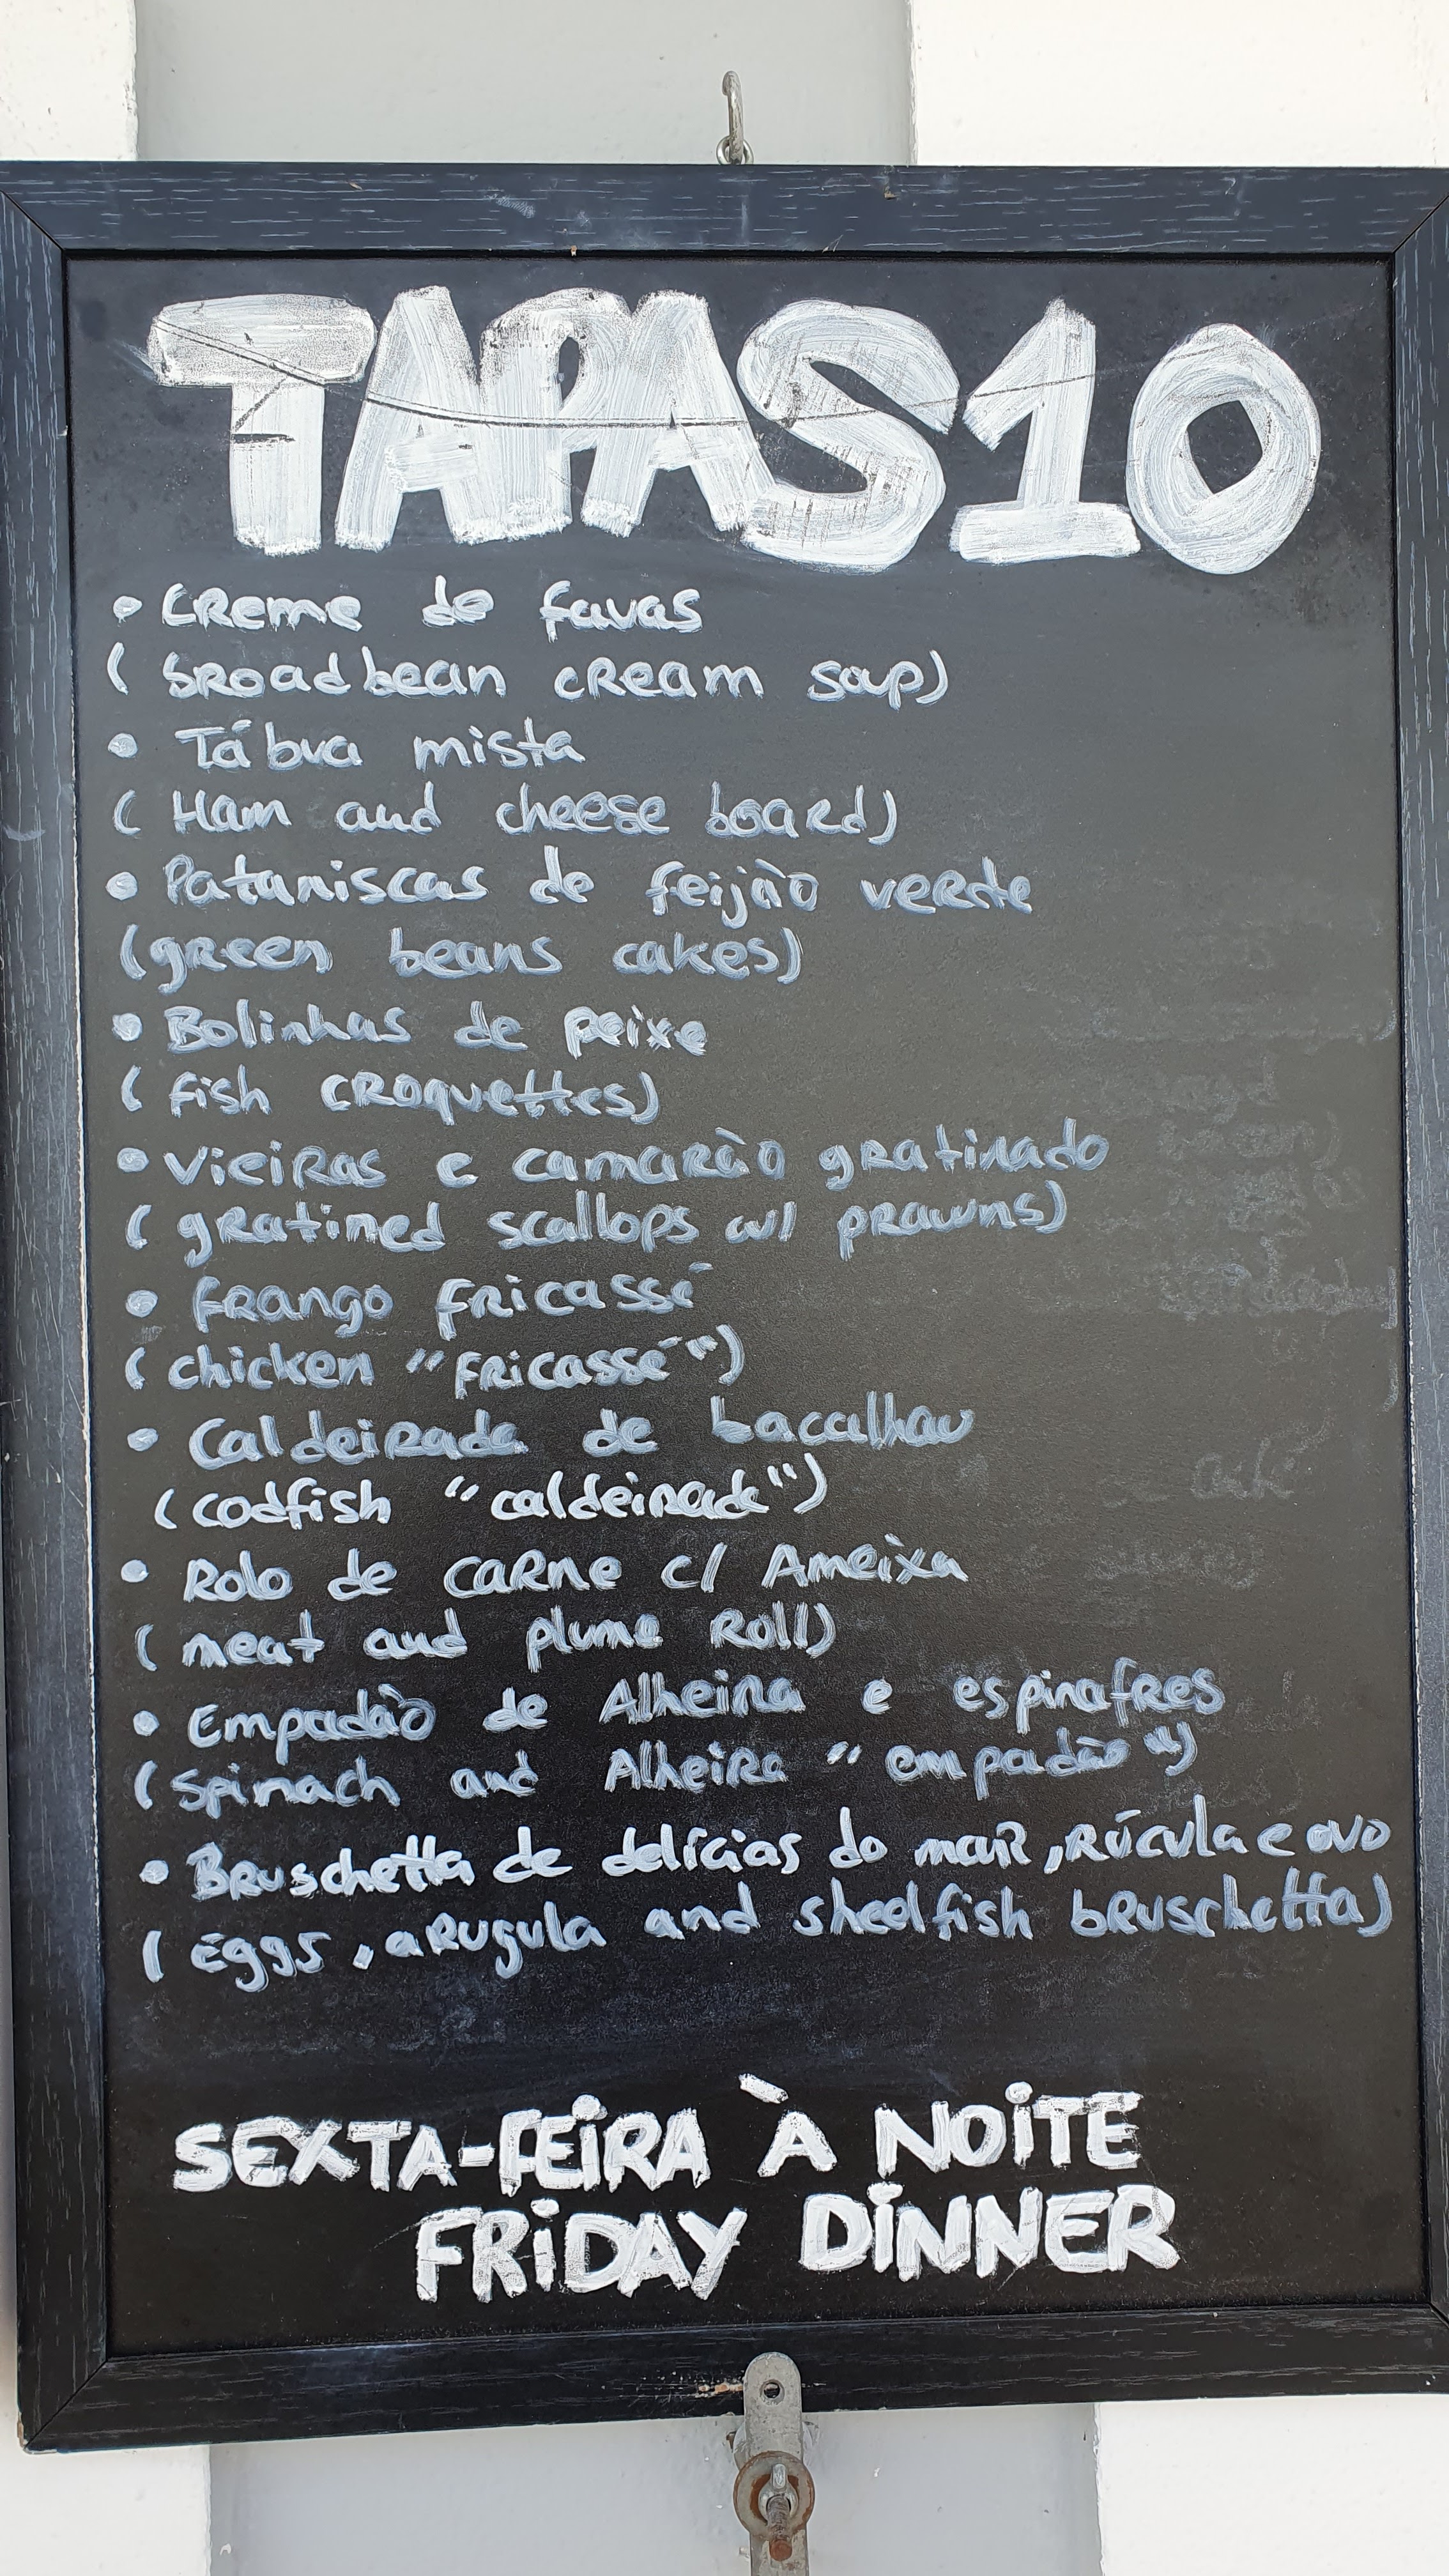 TAPAS10
• Creme de favas
( broadbean cream soup)
• Tábua mista
( Ham and cheese board)
• Pataniscas de feijão verde
(green beans cakes)
• Bolinhas de peixe
( fish croquettes)
• vieiras e camarão gratinado
( gratined scallops w/ prawns)
• frango fricassé
( chicken "fricassé")
• Caldeirada de bacalhau
( codfish "caldeirada")
• Rolo de carne c/ Ameixa
( meat and plume Roll)
• Empadão de Alheira e espinafres
( spinach and Alheira "empadão")
• Bruschetta de delícias do mar, rúcula e ovo
( Eggs, arugula and sheelfish bruschetta)
SEXTA-FEIRA À NOITE
FRIDAY DINNER